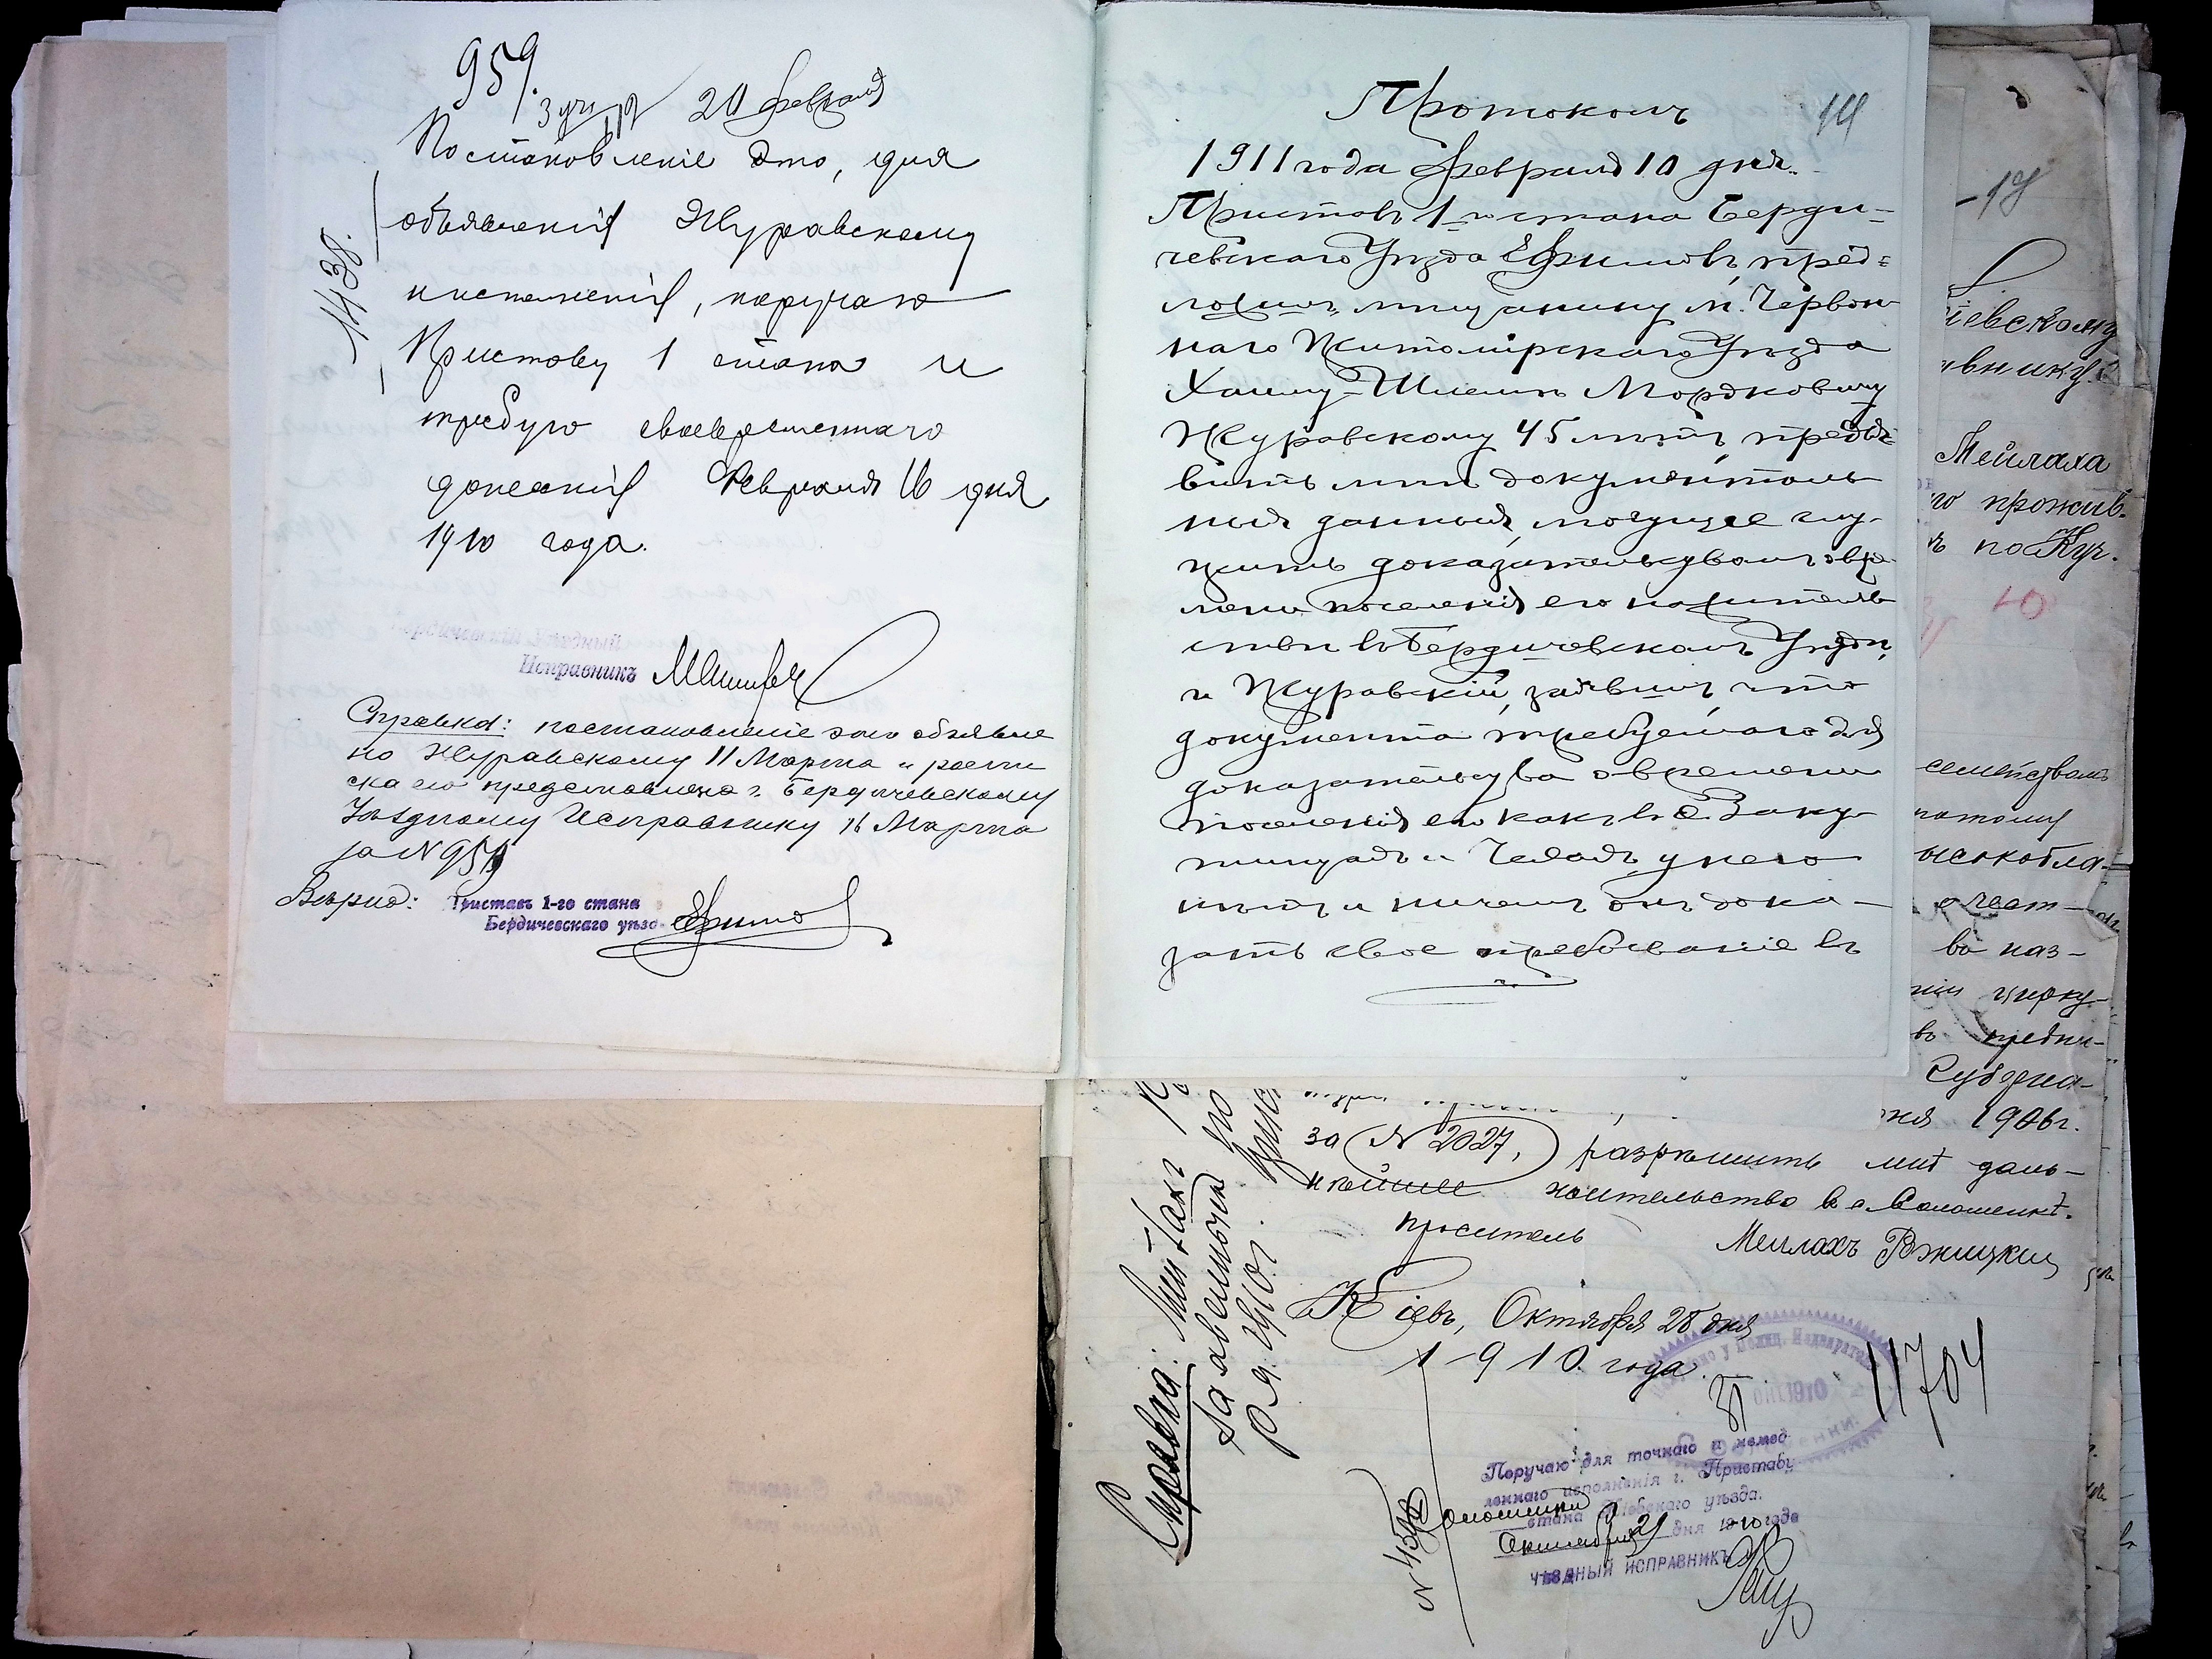 959.
20 февраля
Постановленіе это, для
объявленія Журавскому
и исполненія, поручаю
Приставу 1 стана и
требую своевременнаго
донесенія Февраля 16 дня
1910 года.
1138.
Бердичевскій Уездный
Исправникъ
Справка: постановленіе это объявле
но Журавскому 11 Марта и распи
ска его представлена г. Бердичевскому
Уѣздному Исправнику 16 Марта
за N 959
Вѣрно: Приставъ 1-го стана
Бердичевскаго уѣзд Ефимов
Протоколъ
14
1911 года февраля 10 дня.
Приставъ 1 го стана Берди-
чевскаго Уѣзда Ефимовъ, пред=
ложилъ мѣщанину м. Червон
наго Житомірскаго Уѣзда
Хаиму-Шлемѣ Мордковичу
Журавскому 45 лѣтъ, предъя=
вить мнѣ документаль
ныя данныя, могущіе слу-
жить доказательствомъ о вре
мени поселенія его на жительс
тво въ Бердичевскомъ Уѣздѣ,
и Журавскій, заявилъ, что
документа требуемаго для
доказательства о времени
поселенія его какъ въ с. Заку
тинцахъ и Чехахъ, у него
нѣтъ и ничемъ онъ дока-
зать свое пребываніе въ
-14
іевскому
авнику.
Мейлаха
го прожив.
ъ по Куч.
семействомъ
потому
ысокобла-
ва наз-
ніи цирку-
въ предпи-
Губерна-
ня 1906 г.
за N 2027, разрешить мнѣ даль-
нѣйшее жительство в с. Соломенкѣ.
Проситель Мейлахъ Ржицкий
Кіевъ, Октября 28 дня
1910. года.
31
11704
ОКТ. 1910
Поручаю для точнаго и немед
леннаго исполненія г. Приставу
Соломенки
стана Кіевскаго уѣзда.
Октября 31 дня 1910 года
УѢЗДНЫЙ ИСПРАВНИКЪ
Справка: